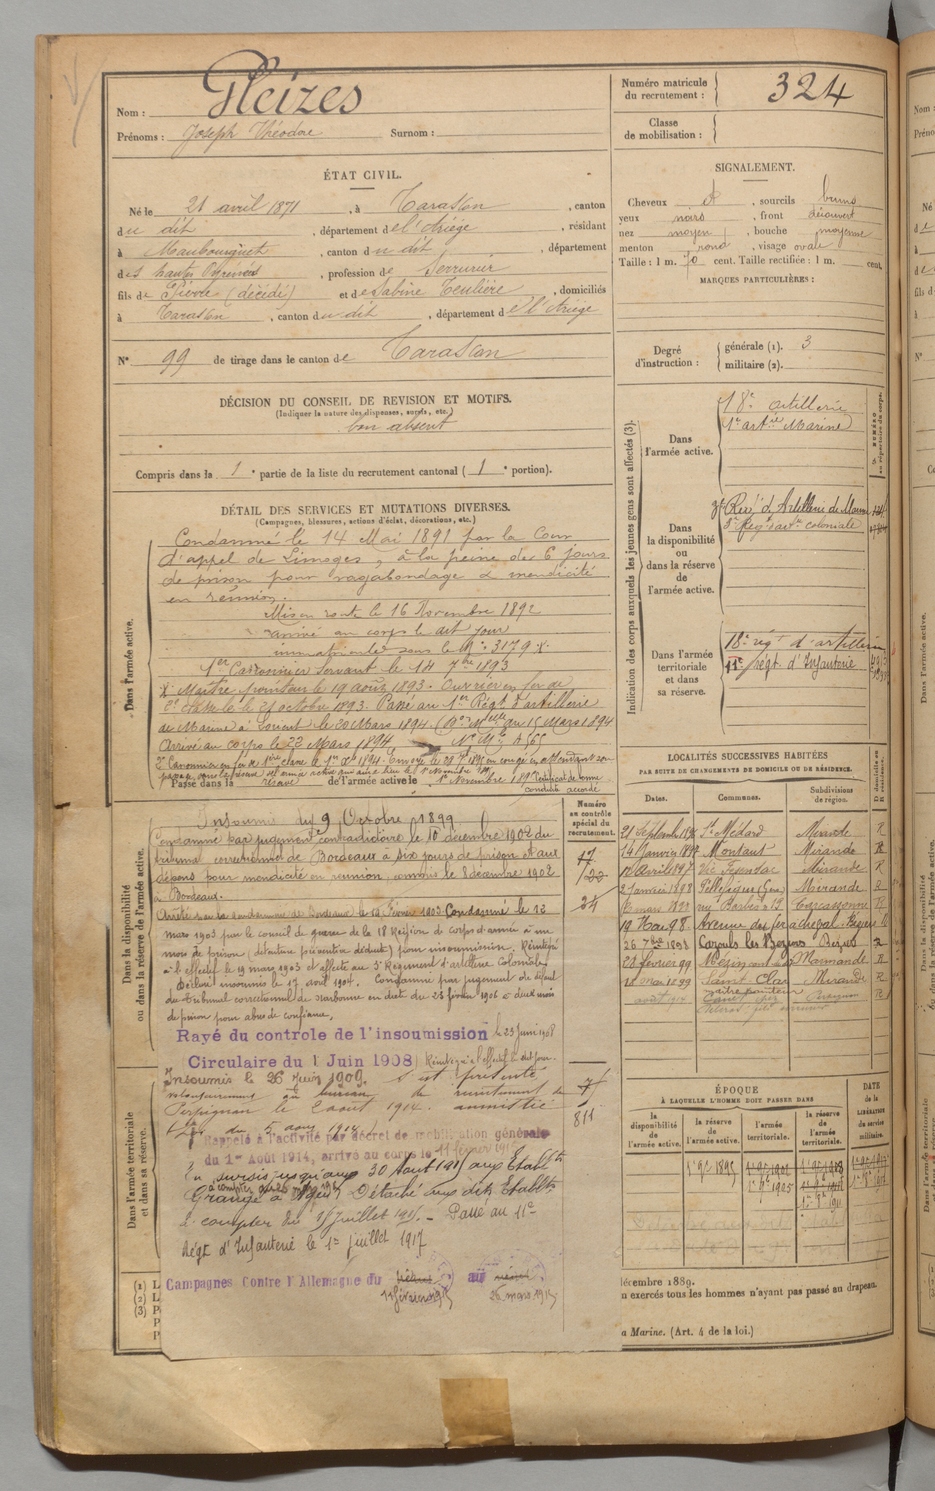 Nom : Gleizes
Prénoms : Joseph Théodore Surnom :
Numéro matricule du recrutement : 324
Classe de mobilisation :
ÉTAT CIVIL.
Né le 21 avril 1871, à Tarascon, canton
du dit, département de l'Ariège, résidant
à Maubourguet, canton du dit, département
des hautes Pyrénées, profession de Serrurier
fils de Pierre (décédé) et de Sabine Teulière, domiciliés
à Tarascon, canton du dit, département de l'Ariège
N° 99 de tirage dans le canton de Tarascon
SIGNALEMENT.
Cheveux , sourcils bruns
yeux noirs, front découvert
nez moyen, bouche moyenne
menton rond, visage ovale
Taille : 1 m. 70 cent. Taille rectifiée : 1 m. cent.
MARQUES PARTICULIÈRES :
Degré d'instruction : générale (1). 3
militaire (2).
DÉCISION DU CONSEIL DE REVISION ET MOTIFS.
(Indiquer la nature des dispenses, sursis, etc.)
bon absent
Compris dans la 1e partie de la liste du recrutement cantonal (1e portion).
DÉTAIL DES SERVICES ET MUTATIONS DIVERSES.
(Campagnes, blessures, actions d'éclat, décorations, etc.)
Dans l'armée active.
Condamné le 14 Mai 1891 par la Cour
d'appel de Limoges, à la peine de 6 jours
de prison pour vagabondage & mendicité
en réunion.
Mis en route le 16 Novembre 1892
arrivé au corps le dit jour
immatriculé sous le N° 3179 X.
1er Canonnier Servant le 14 7bre 1893
X Maître pointeur le 19 août 1893. Ouvrier en fer de
2e classe le 21 octobre 1893. Passé au 1er Régt d'artillerie
de Marine à Lorient le 20 Mars 1894 (Don Melle du 15 Mars 1894
Arrivé au corps le 22 Mars 1894. N° Mle 4565
Passé dans la réserve de l'armée active le 1er Novembre 1895 Certificat de bonne
conduite accordé
Dans la disponibilité ou dans la réserve de l'armée active.
Numéro en contrôle spécial du recrutement.
Insoumis du 9 Octobre 1899
Condamné par jugement contradictoire le 10 décembre 1902 du
tribunal correctionnel de Bordeaux à six jours de prison et aux
dépens pour mendicité en réunion, commis le 8 décembre 1902
à Bordeaux.
Arrêté par la gendarmerie de Bordeaux le 14 Février 1903. Condamné le 12
mars 1903 par le conseil de guerre de la 18e Région de corps d'armée à un
mois de prison (détention préventive déduite) pour insoumission. Réintégré
à l'effectif le 19 mars 1903 et affecté au 3e Régiment d'artillerie Coloniale.
Déclaré insoumis le 17 avril 1904. Condamné par jugement de défaut
du tribunal correctionnel de Narbonne en date du 23 février 1906 à deux mois
de prison pour abus de confiance.
Rayé du controle de l'insoumission le 23 Juin 1908
(Circulaire du 1 Juin 1908) Réintégré à l'effectif le dit jour.
Dans l'armée territoriale et dans sa réserve.
Insoumis le 26 Juin 1909. S'est présenté
volontairement au bureau de recrutement de
Perpignan le 2 août 1914. amnistié
du 5 août 1914.
811
Rappelé à l'activité par décret de mobilisation générale
du 1er Août 1914, arrivé au corps le 11 février 1915
En sursis jusqu'au 30 Aout 1915 aux Etablts
Détaché aux dits Etablts
à compter du 1 Juillet 1915. - Passé au 11e
Régt d'Infanterie le 1er Juillet 1917
Campagnes Contre l'Allemagne du 11 février 1915 au 26 mars 1915
Indication des corps auxquels les jeunes gens sont affectés (3).
NUMÉRO au répertoire du corps.
Dans l'armée active.
18e artillerie
1er artie Marine
Dans la disponibilité ou dans la réserve de l'armée active.
3e Régt d'Artillerie de Marine
3e Régt d'artie coloniale
Dans l'armée territoriale et dans sa réserve.
18e régt d'artillerie
11e régt d'Infanterie
LOCALITÉS SUCCESSIVES HABITÉES
PAR SUITE DE CHANGEMENTS DE DOMICILE OU DE RÉSIDENCE.
Dates. Communes. Subdivisions de région. D domicile ou R résidence.
21 Septembre 1896 St Médard Mirande R
14 Janvier 1897 Montaut Mirande R
16 Avril 1897 Vic Fezensac Mirande R
2 Janvier 1898 Mirande R
6 mars 1898 rue Barbès n° 12 Carcassonne R
19 Mai 98 Béziers R
26 7bre 1898 Cazouls les Béziers Béziers R
21 février 99 Mézin Marmande R
18 mai 1899 Saint Clar Mirande R
ÉPOQUE
À LAQUELLE L'HOMME DOIT PASSER DANS
la disponibilité de l'armée active. la réserve de l'armée active. l'armée territoriale. la réserve de l'armée territoriale. DATE de la LIBÉRATION du service militaire.
1er 9e 1895
1er 8e 1905
décembre 1889.
n exercés tous les hommes n'ayant pas passé au drapeau.
a Marine. (Art. 4 de la loi.)
(1) L
(2) L
(3) P
P
P